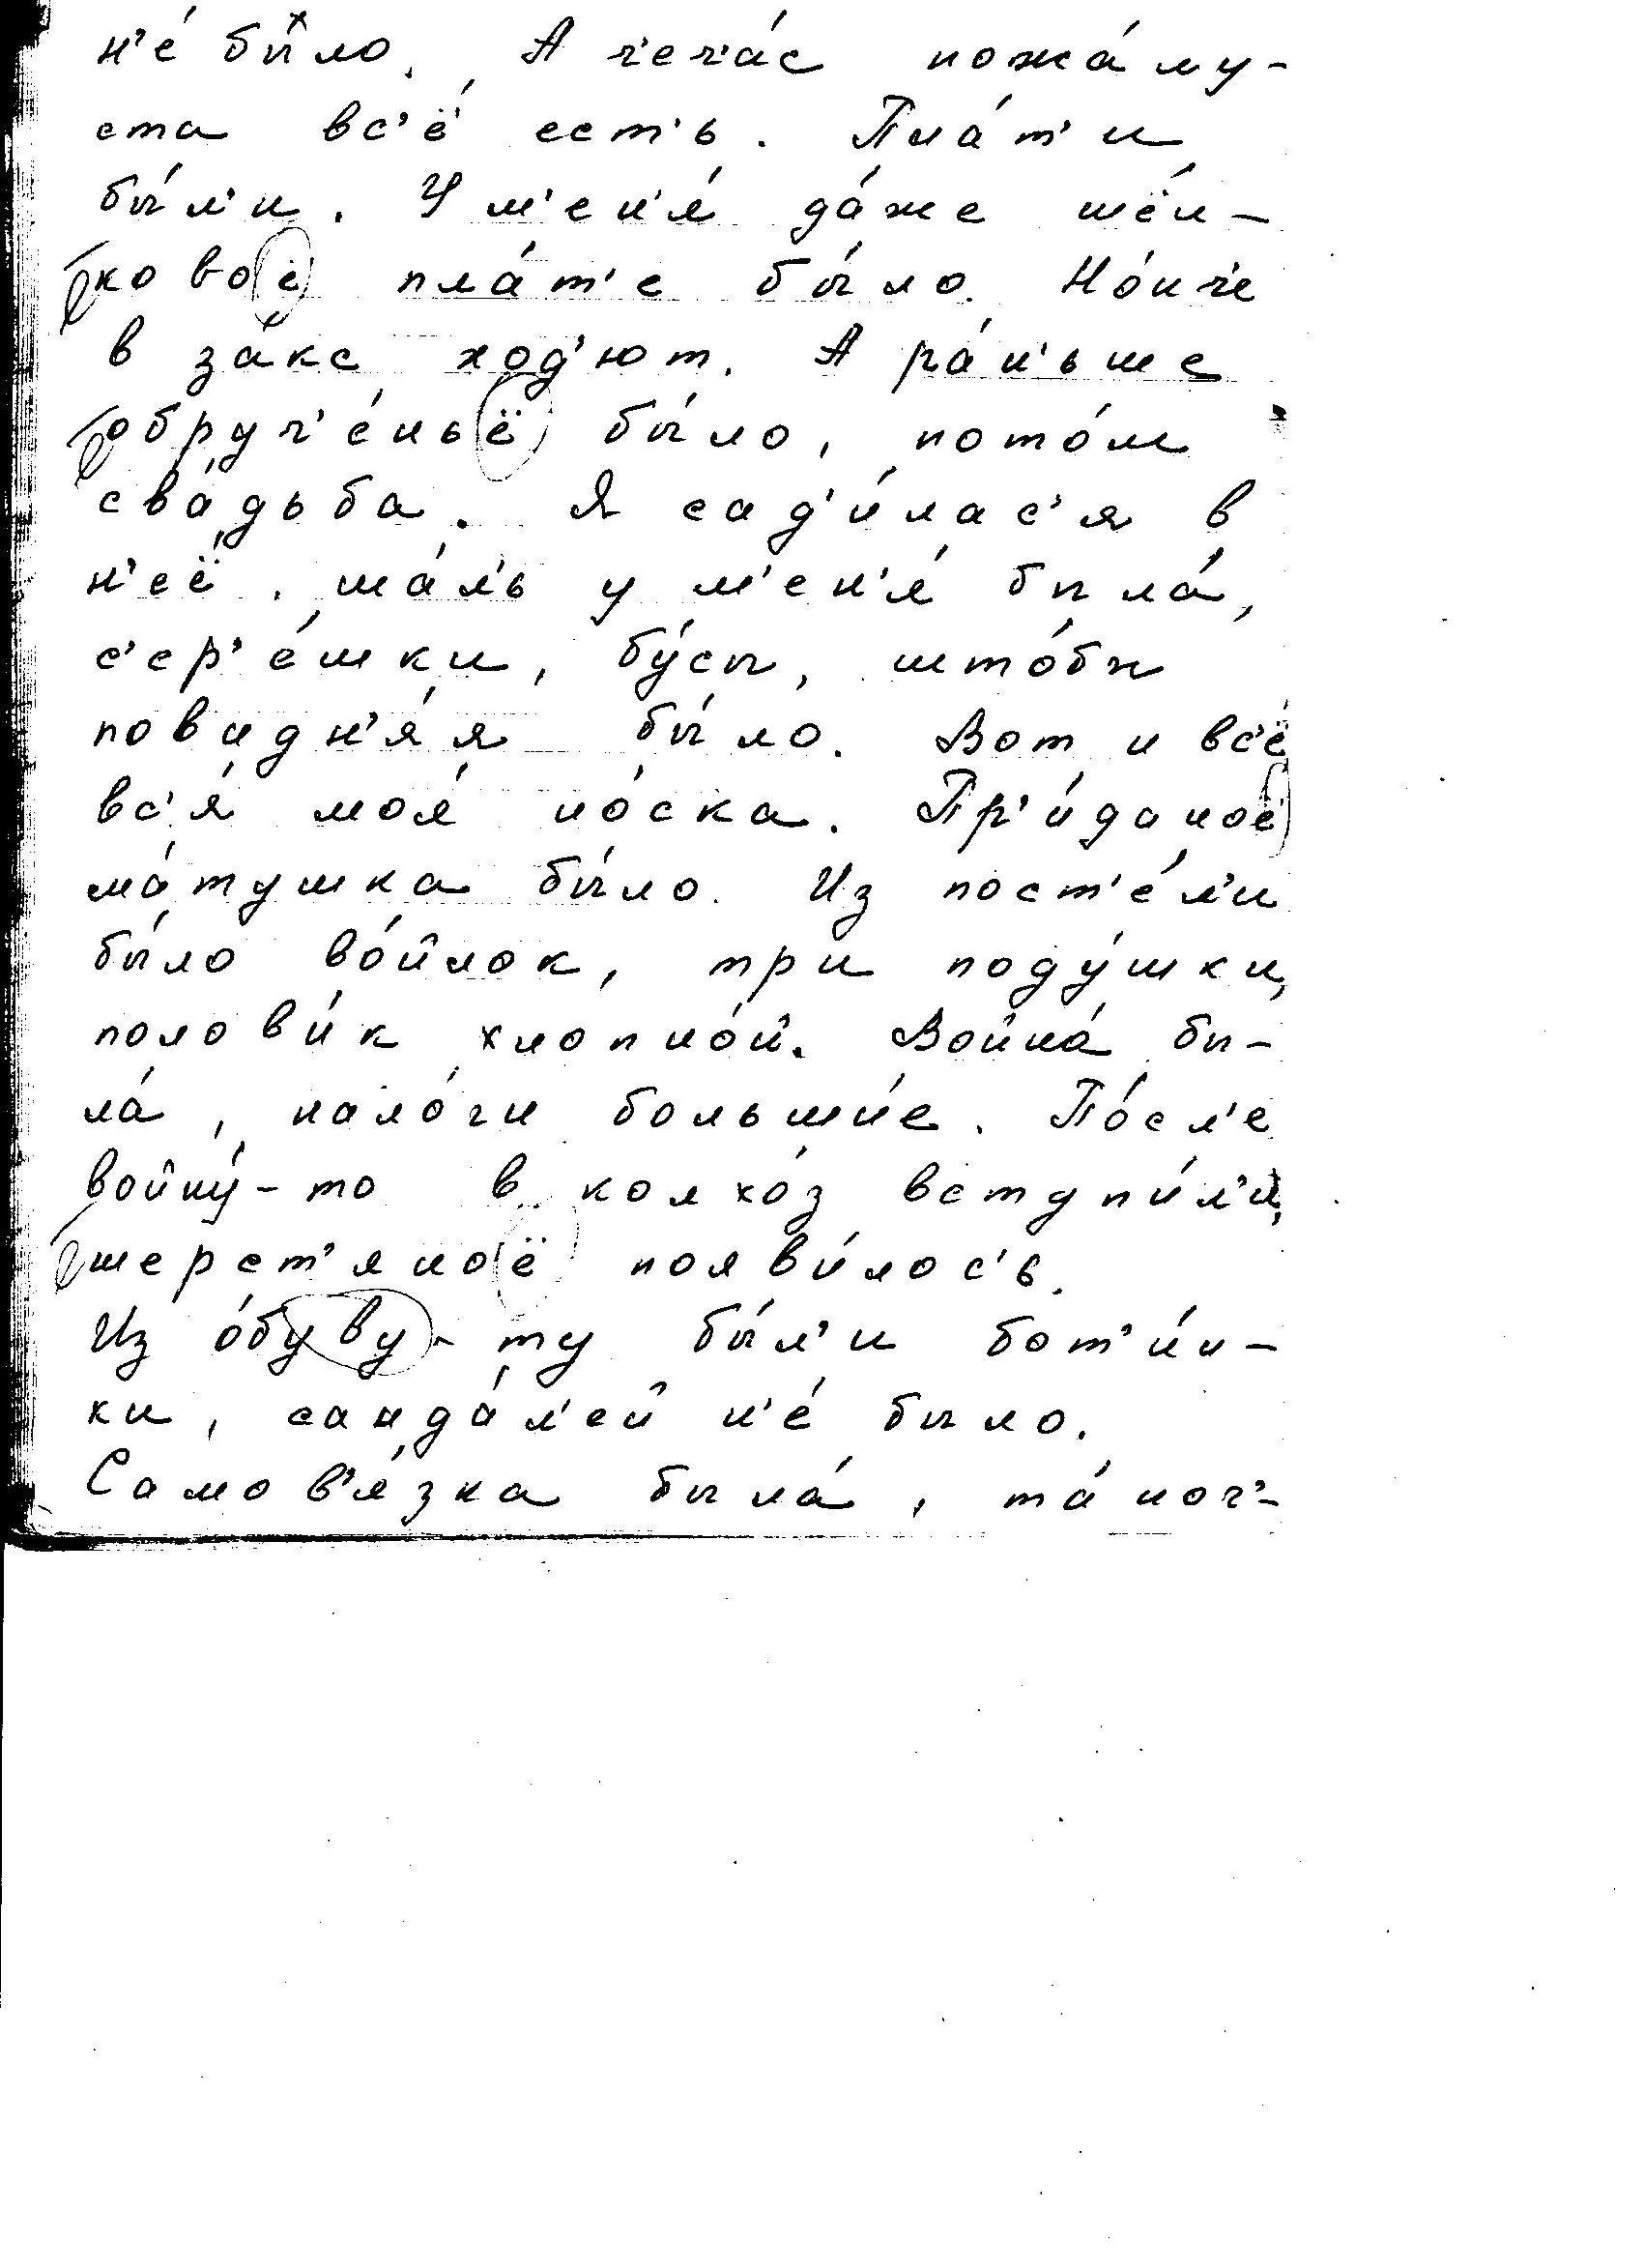 н'е́ бы́ло. А ч'еч'а́с пожа́лу-
ста вс'ё есть. Пла́т'и
бы́л'и. У м'ен'я́ да́же шёл-
ковоё пла́т'е бы́ло. Но́нч'е
в за́кс ход'ют. А ра́н'ьше
обруч'е́ньё бы́ло, пото́м
сва́дьба. Я сад'и́лас'я в
н'её. ша́л'ь у м'ен'я́ была́,
с'ер'ёшки, бу́сы, што́бы
повидн'я́я бы́ло. Вот и вс'ё
вс'я́ моя́ но́ска. Пр'и́даноё
ма́тушка бы́ло. Из пост'е́л'и
бы́ло во́йлок, три поду́шки,
полови́к хлопно́й. Война́ бы-
ла́, нало́ги больши́е. По́сл'е
войну́-то в колхо́з вступи́л'и,
шерст'яноё появи́лос'ь.
Из о́буву-ту бы́л'и бот'и́н-
ки, санда́л'ей н'е́ было.
Самов'я́зка была́, та́ноч'-